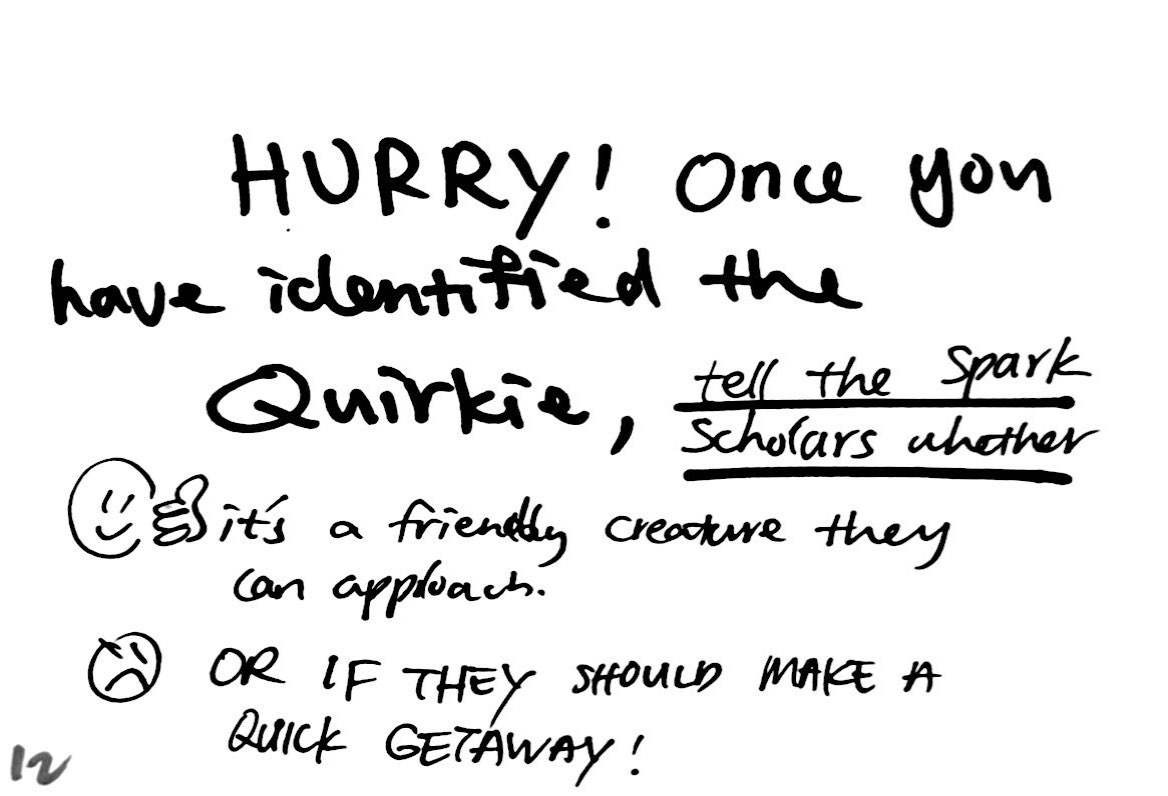 HURRY! Once you
have identified the
Quirkie, tell the Spark
Scholars whether
it's a friendly creature they
can approach.
OR IF THEY SHOULD MAKE A
QUICK GETAWAY!
12